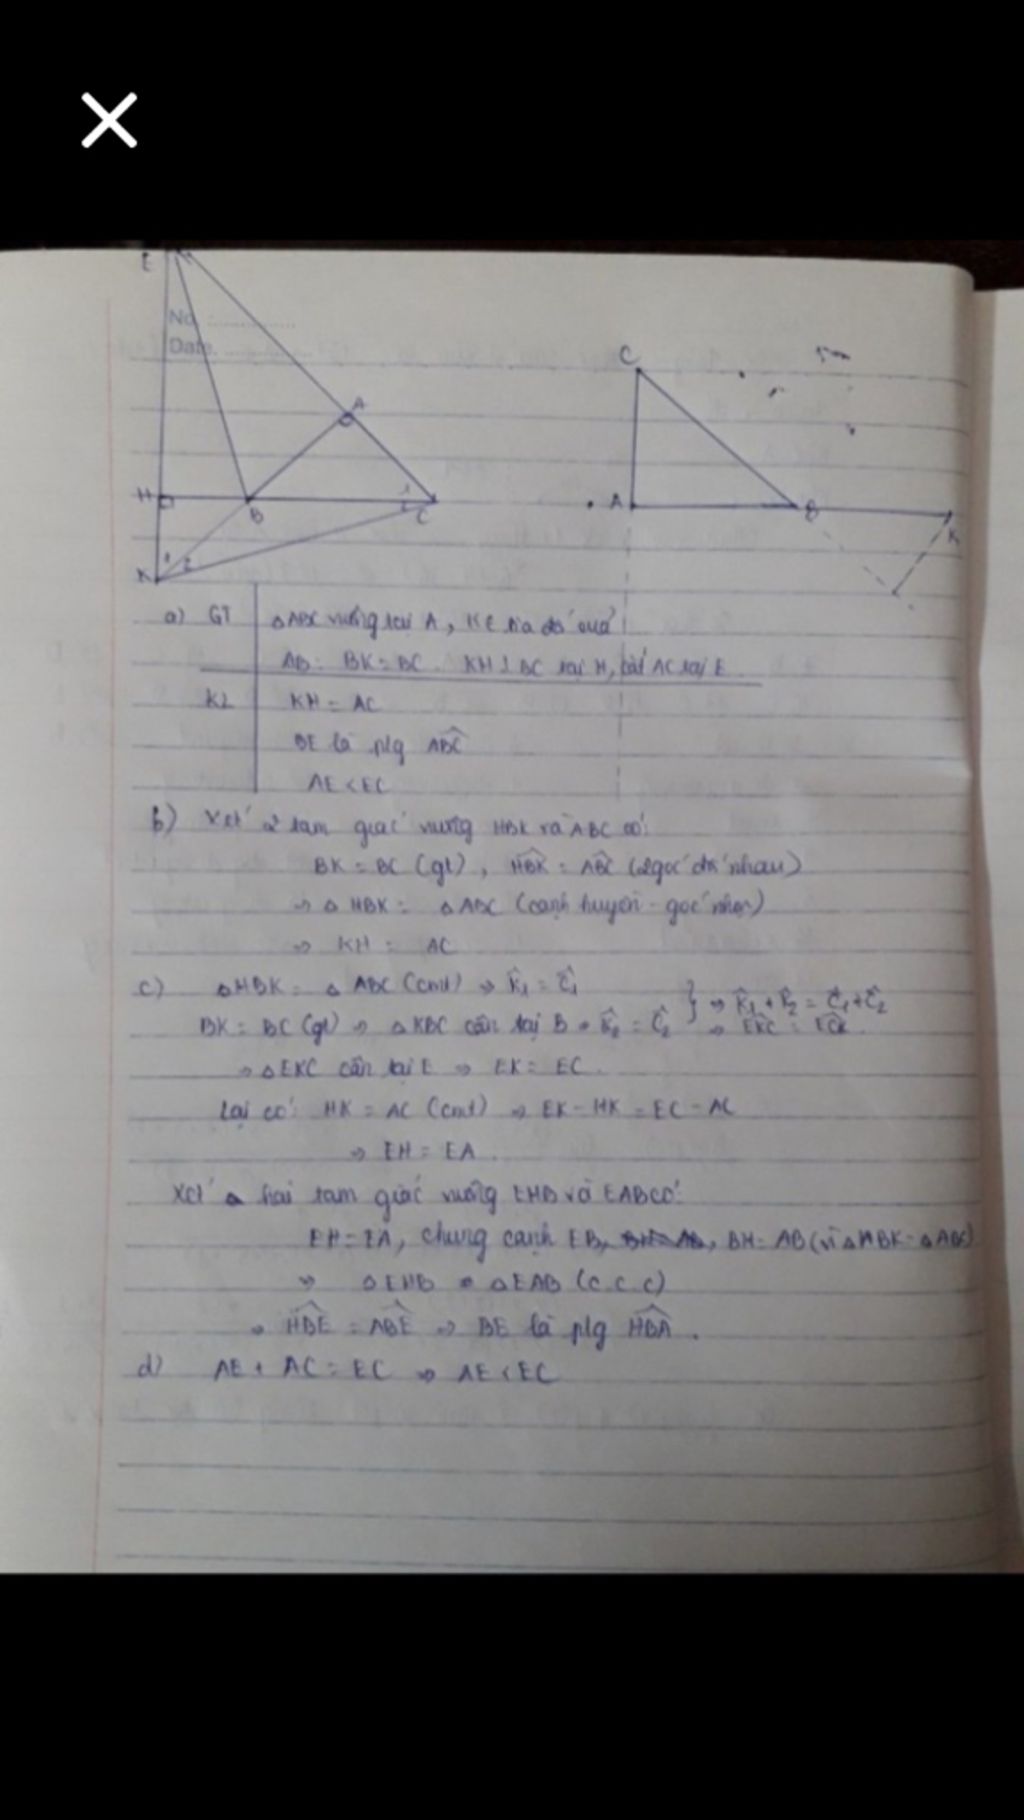 E
No. :
Date.
C
A
H
B
C
A
B
K
1
2
K
1
2
a) GT
△ABC vuông tại A,
AB: BK = BC. KH ⊥ BC tại H, cắt AC tại E.
KL
KH = AC
BE là plg ABC^
AE < EC
b) Xét 2 tam giác vuông HBK và ABC có:
BK = BC (gt), HBK^ = ABC^ (2 góc đđ nhau)
⇒ △ HBK = △ ABC (cạnh huyền - góc nhọn)
⇒ KH = AC
c) △HBK = △ ABC (cmt) ⇒ K̂1 = Ĉ1
BK = BC (gt) ⇒ △ KBC cân tại B ⇒ K̂2 = Ĉ2
} ⇒ K̂1 + K̂2 = Ĉ1 + Ĉ2
⇒ EKC^ = ECK^
⇒ △EKC cân tại E ⇒ EK = EC.
Lại có: HK = AC (cmt) ⇒ EK - HK = EC - AC
⇒ EH = EA.
Xét hai tam giác vuông EHB và EAB có:
EH = EA, chung cạnh EB, BH = AB (vì △HBK = △ABC)
⇒ △EHB = △EAB (c.c.c)
⇒ HBE^ = ABE^ ⇒ BE là plg HBA^.
d) AE + AC = EC ⇒ AE < EC